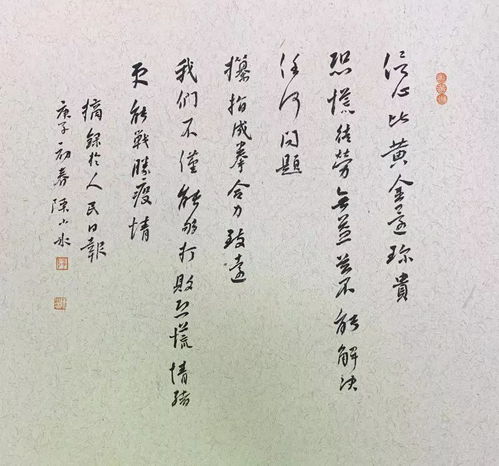 信心比黄金還珍貴
恐慌徒勞無益並不能解決
任何問題
攥指成拳合力致遠
我們不僅能夠打敗恐慌情緒
更能戰勝疫情
摘錄於人民日報
庚子初春陳小水